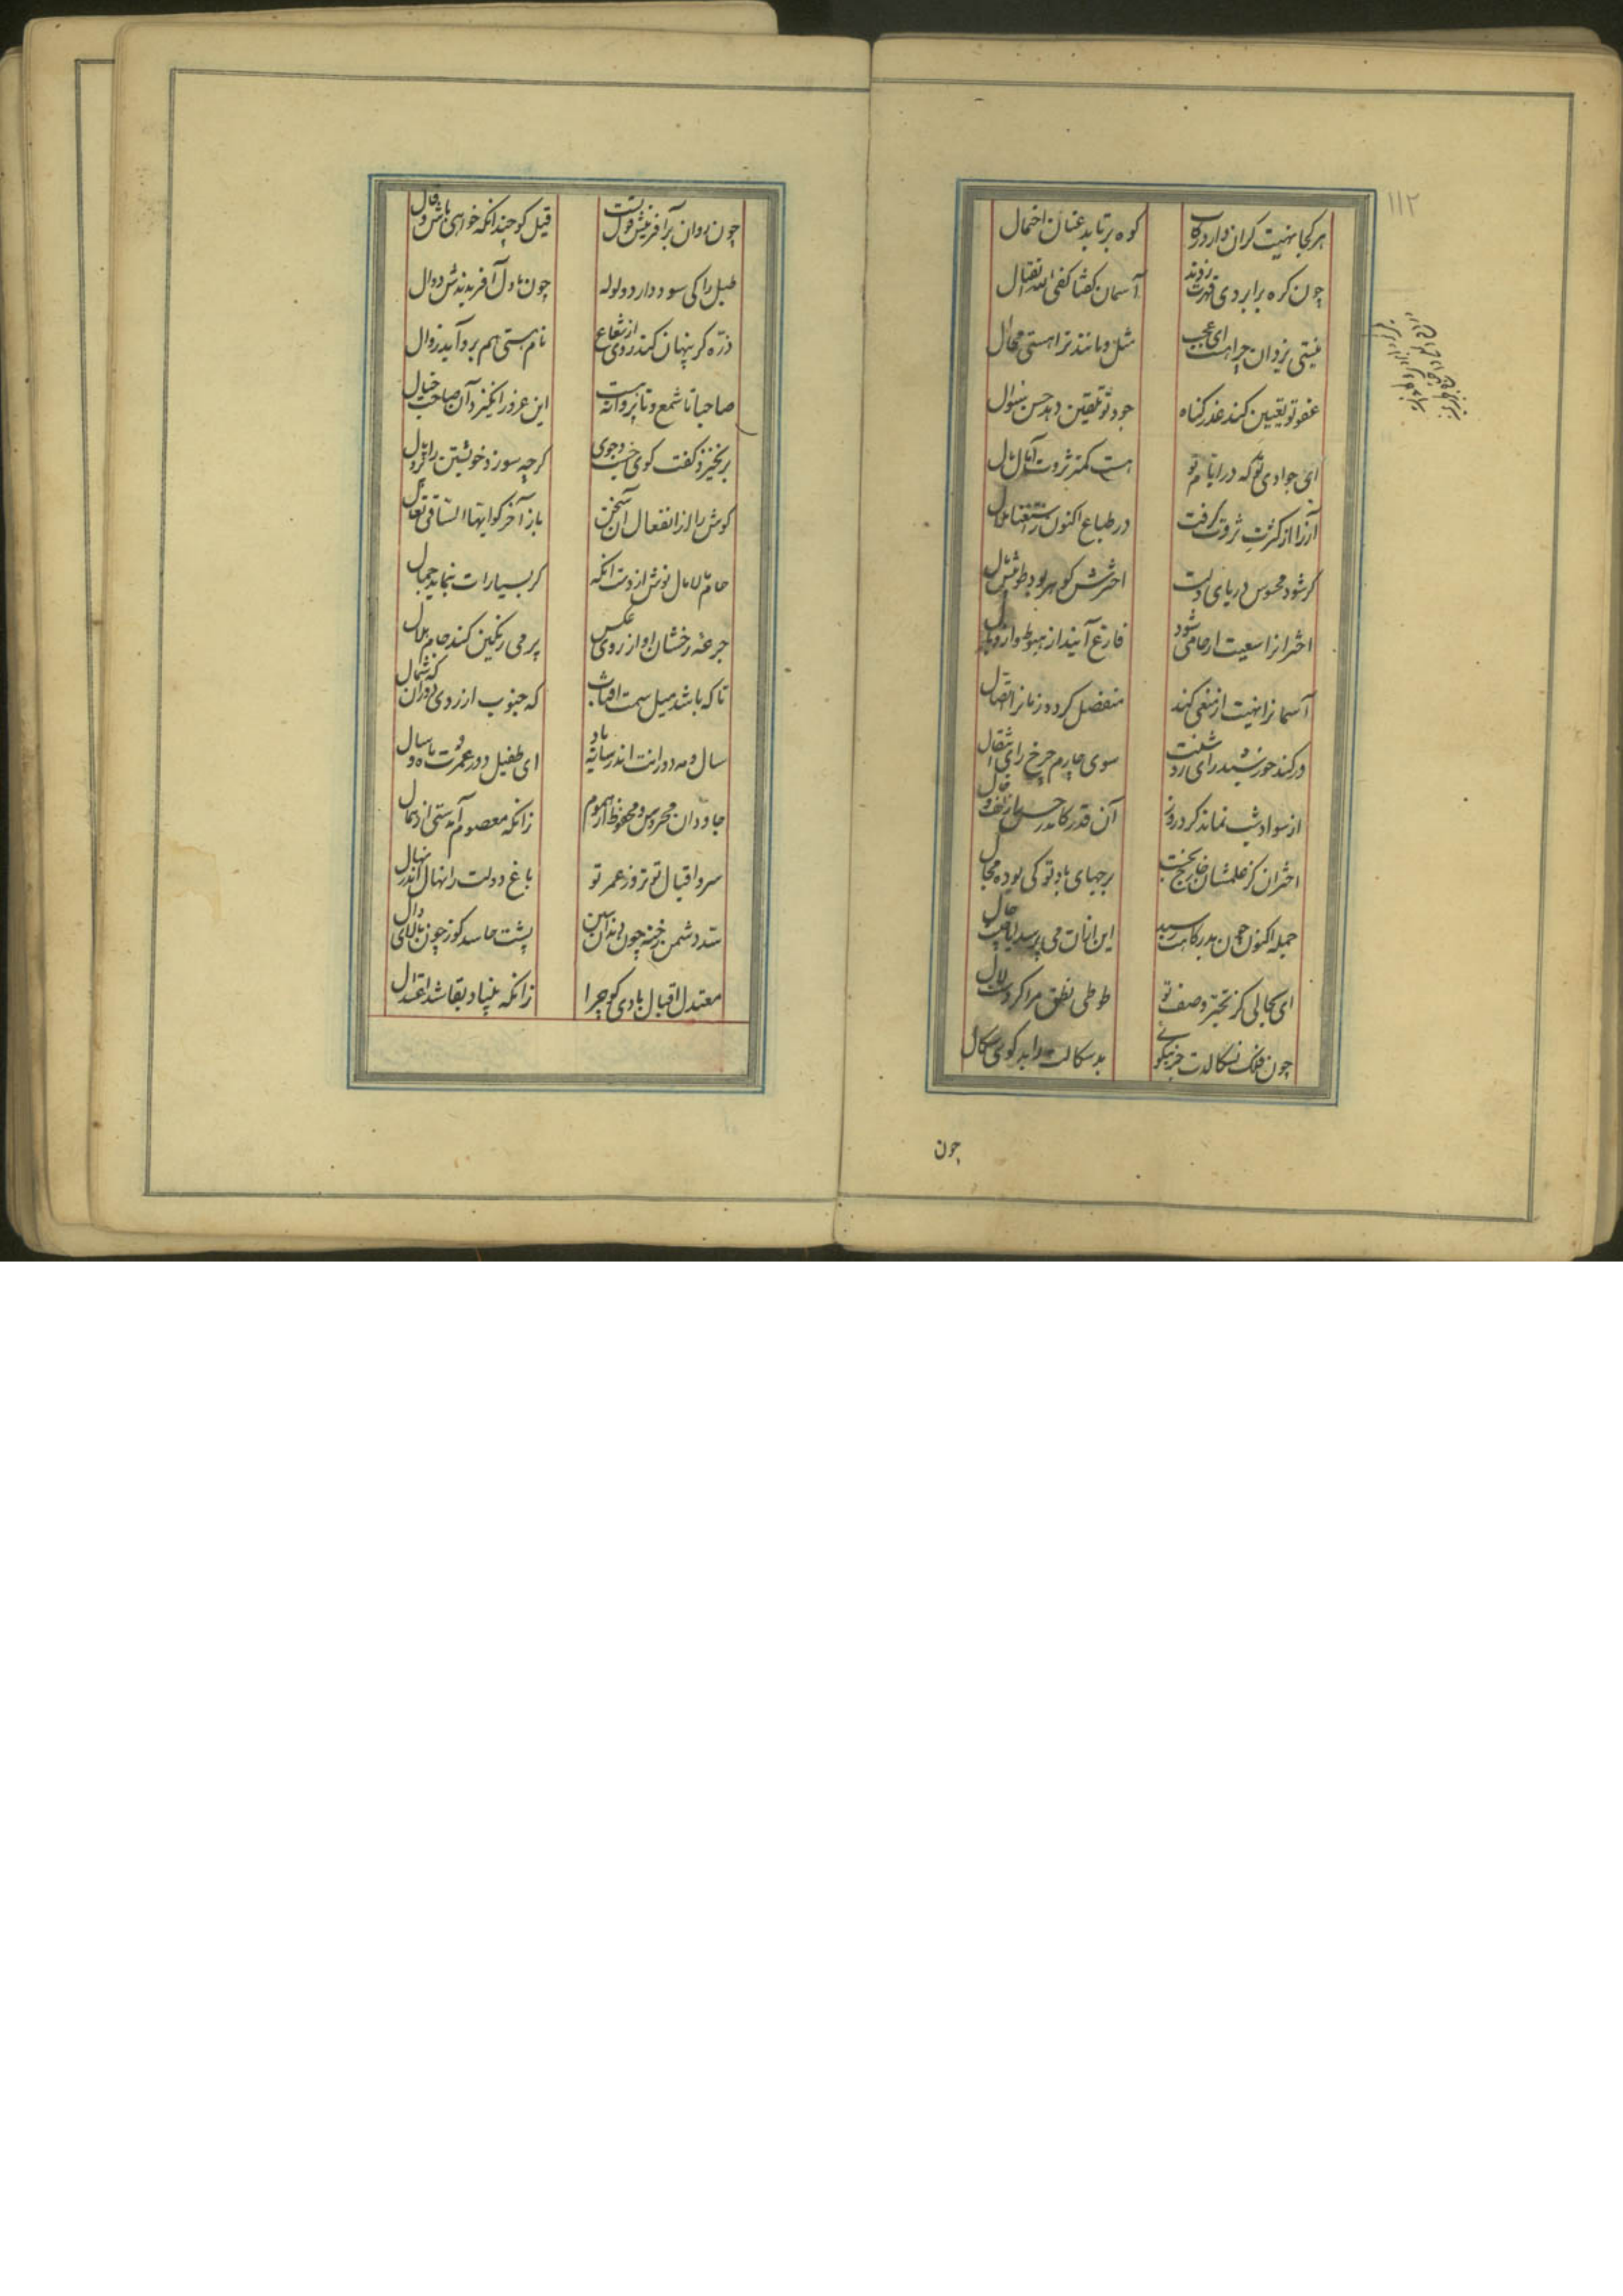 ۱۱۲
هر کجا نهیت کران دارد رکاب کوه برتابد عنان احتمال
چون کره بر ابروی قهرت زدند آسمان گفتا کفی الله القتال
نیستی یزدان چرا هست ای عجب مثل و مانند ترا هستی محال
عفو تو تعیین کند عذر گناه جود تو تلقین دهد حسن سئوال
ای جوادی تو که در ایام تو هست کمتر ثروت آمال مال
آز را از کثرت ثروت گرفت در طباع اکنون ز استغنا ملال
گر شود محسوس دریای دلت اخترش گوهر بود طوبیش نال
اختران را سعیت ار حامی شود فارغ آیند از هبوط و از وبال
آسمان را نهیت ار منعی کند منفصل گردد زمان را اتصال
ور کند خورشید رای روشنت سوی چارم چرخ رای انتقال
از سواد شب نماند گرد روز آن قدر کاندر حسیب از زلف و خال
اختران کز علمشان خارج نجست برجهای باد تو کی بوده مجال
جمله اکنون چون بدرگاهت رسید این از آن می پرسد آیا چیست حال
ای کمالی کز تحیر وصف تو طوطی نطق مرا کردست لال
چون فلک نسگالدت جز نیکویی بدسگالت را بدگوی سگال
چون
چون روان بر آفرینش قول تست قیل گو چندانکه خواهی باش و قال
طبل را کی سود دارد ولوله چون با دل آفریدندش دوال
ذره گر پنهان کند روی از شعاع نام هستی هم برو آید زوال
صاحبا تا شمع و تا پروانه هست این غرور انگیزد آن صاحب خیال
برنخیزد گفت گوی جست و جوی گرچه سوزد خویشتن را پر و بال
گوش را از انفعال آن سخن باز آخر گو ایها الساقی تعال
جام مالامال نوش از دست آنکه گر بسیارات بنماید جمال
جرعه رخشان او از روی عکس پر می رنگین کند جام هلال
تا که باشد میل سمت آفتاب که جنوب از روی دوران که شمال
سال و مه دورانت اندر سایه باد ای طفیل دور عمرت ماه و سال
جاودان محروس و محفوظ از هموم زانکه معصوم آمدستی از همال
سرو اقبال تو تر و ز عمر تو باغ دولت را نهال اندر نهال
سد دشمن رخنه چون دندان سین پشت حاسد کوز چون بالای دال
معتدل اقبال بادی گو چرا زانکه بنیاد بقا شد اعتدال